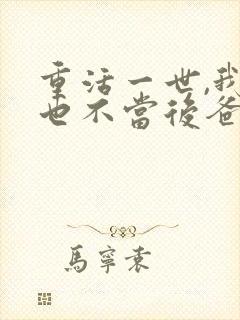 重活一世,我
也不當後爸
馬寧素